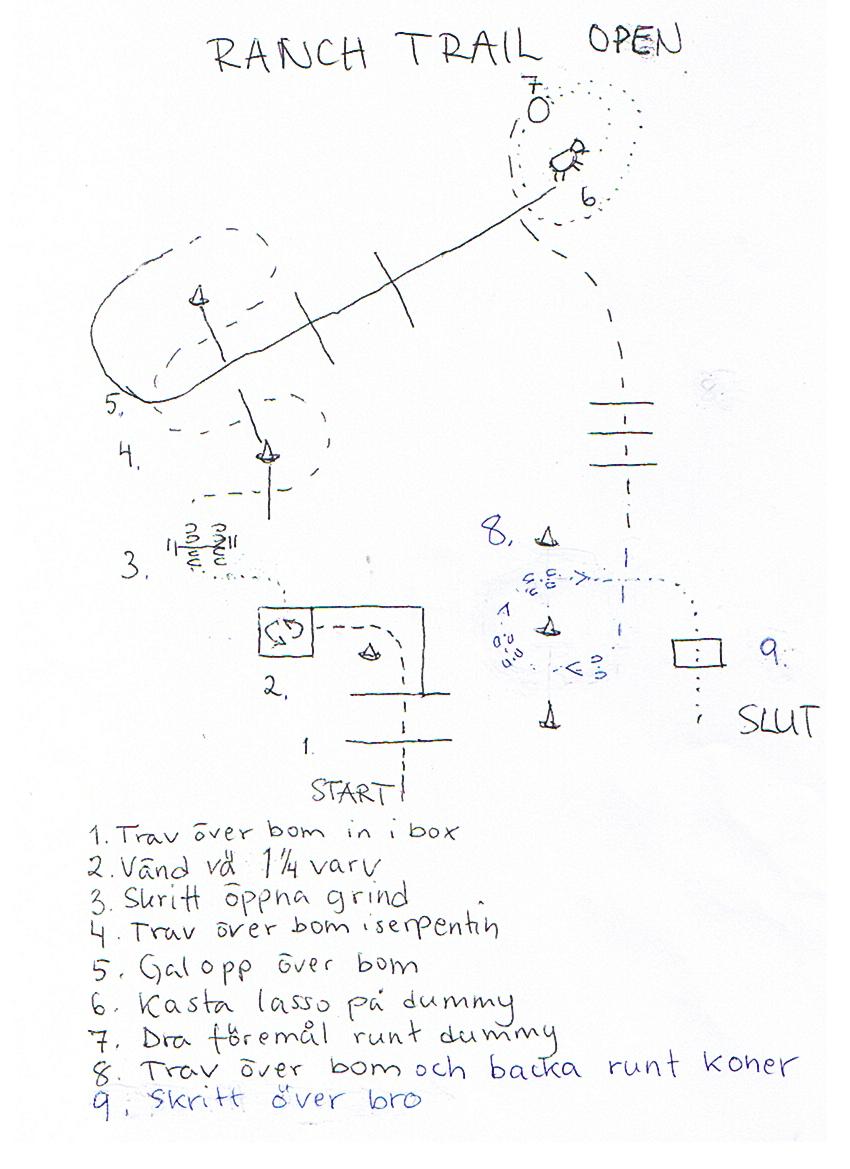 RANCH TRAIL OPEN
7
6
5.
4.
3.
8.
2.
9.
SLUT
1.
START
1. Trav över bom in i box
2. Vänd vä 1 1/4 varv
3. Skritt öppna grind
4. Trav över bom i serpentin
5. Galopp över bom
6. Kasta lasso på dummy
7. Dra föremål runt dummy
8. Trav över bom och backa runt koner
9. Skritt över bro